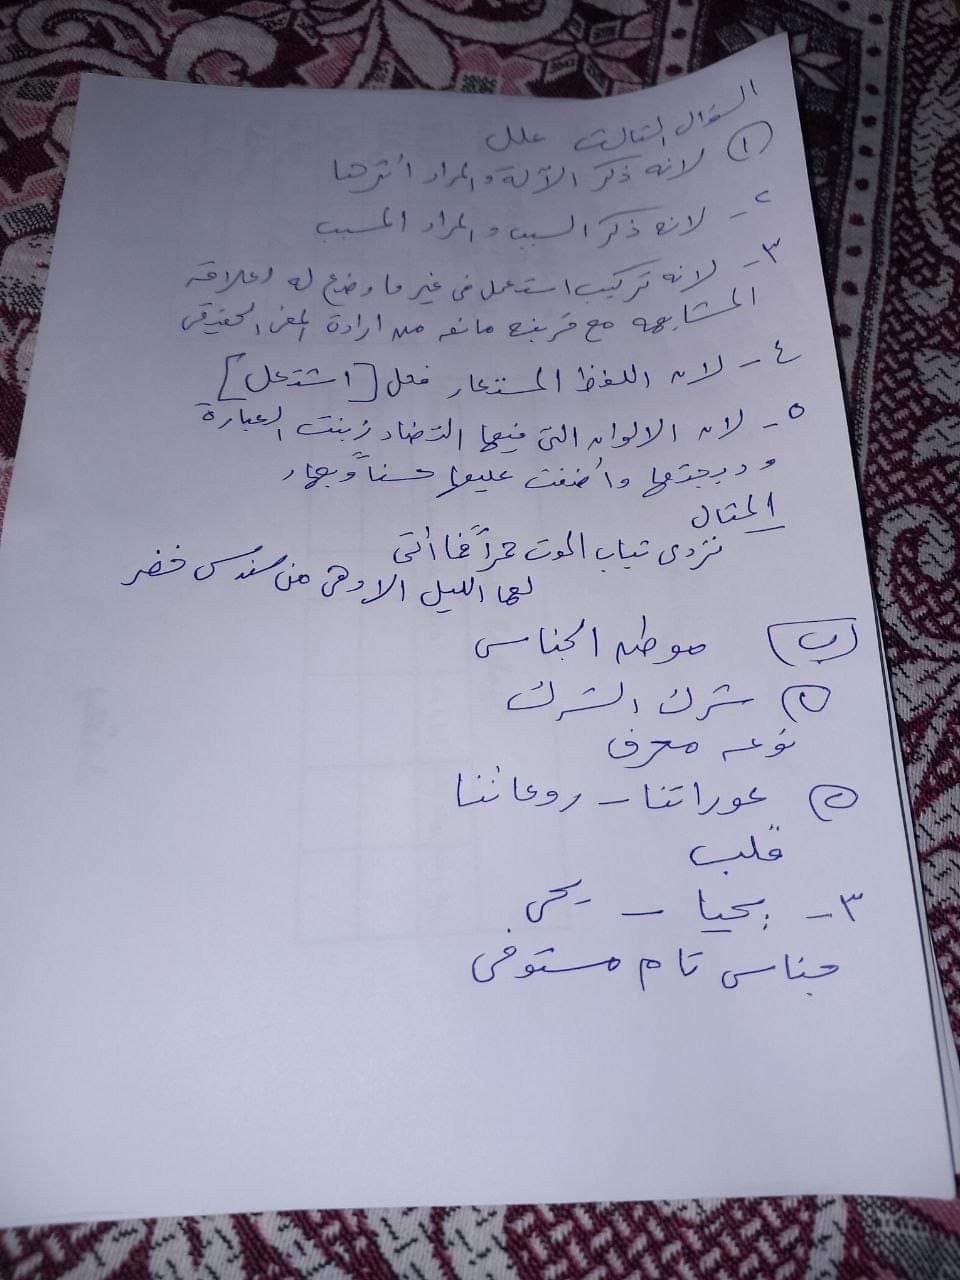 السؤال الثالث علل
(١) لانه ذكر الآلة والمراد أثرها
٢- لانه ذكر السبب والمراد المسبب
٣- لانه تركيب استعمل فى غير ما وضع له لعلاقه
المشابهه مع قرينه مانعه من ارادة المعنى الحقيقى
٤- لان اللفظ المستعار فعل [اشتعل]
٥- لان الالوان التى فيها التضاد زينت العبارة
ودبجتها وأضفت عليها حسناً وبهاء
المثال
تردى ثياب الموت حمراً فما أتى
لها الليل الا وهى من سندس خضر
(ب) موطن الجناس
شرك الشرك
نوعه محرف
عوراتنا - روعاتنا
قلب
٣- يحيا - يحيى
جناس تام مستوفى